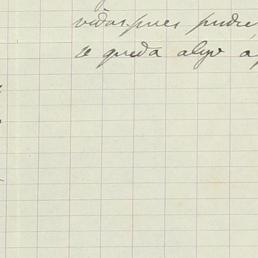 vidas pues pudie
se queda algo a